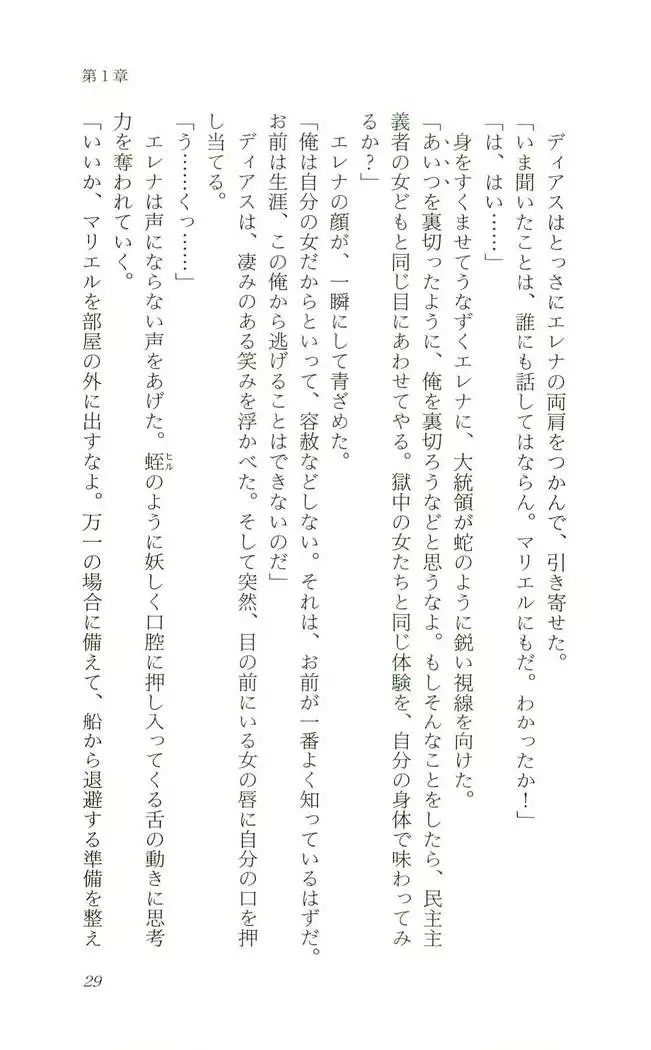 第1章
ディアスはとっさにエレナの両肩をつかんで、引き寄せた。
「いま聞いたことは、誰にも話してはならん。マリエルにもだ。わかったか！」
「は、はい……」
身をすくませてうなずくエレナに、大統領が蛇のように鋭い視線を向けた。
「あいつを裏切ったように、俺を裏切ろうなどと思うなよ。もしそんなことをしたら、民主主
義者の女どもと同じ目にあわせてやる。獄中の女たちと同じ体験を、自分の身体で味わってみ
るか？」
エレナの顔が、一瞬にして青ざめた。
「俺は自分の女だからといって、容赦などしない。それは、お前が一番よく知っているはずだ。
お前は生涯、この俺から逃げることはできないのだ」
ディアスは、凄みのある笑みを浮かべた。そして突然、目の前にいる女の唇に自分の口を押
し当てる。
「う……くっ……」
エレナは声にならない声をあげた。蛭のように妖しく口腔に押し入ってくる舌の動きに思考
ヒル
力を奪われていく。
「いいか、マリエルを部屋の外に出すなよ。万一の場合に備えて、船から退避する準備を整え
29